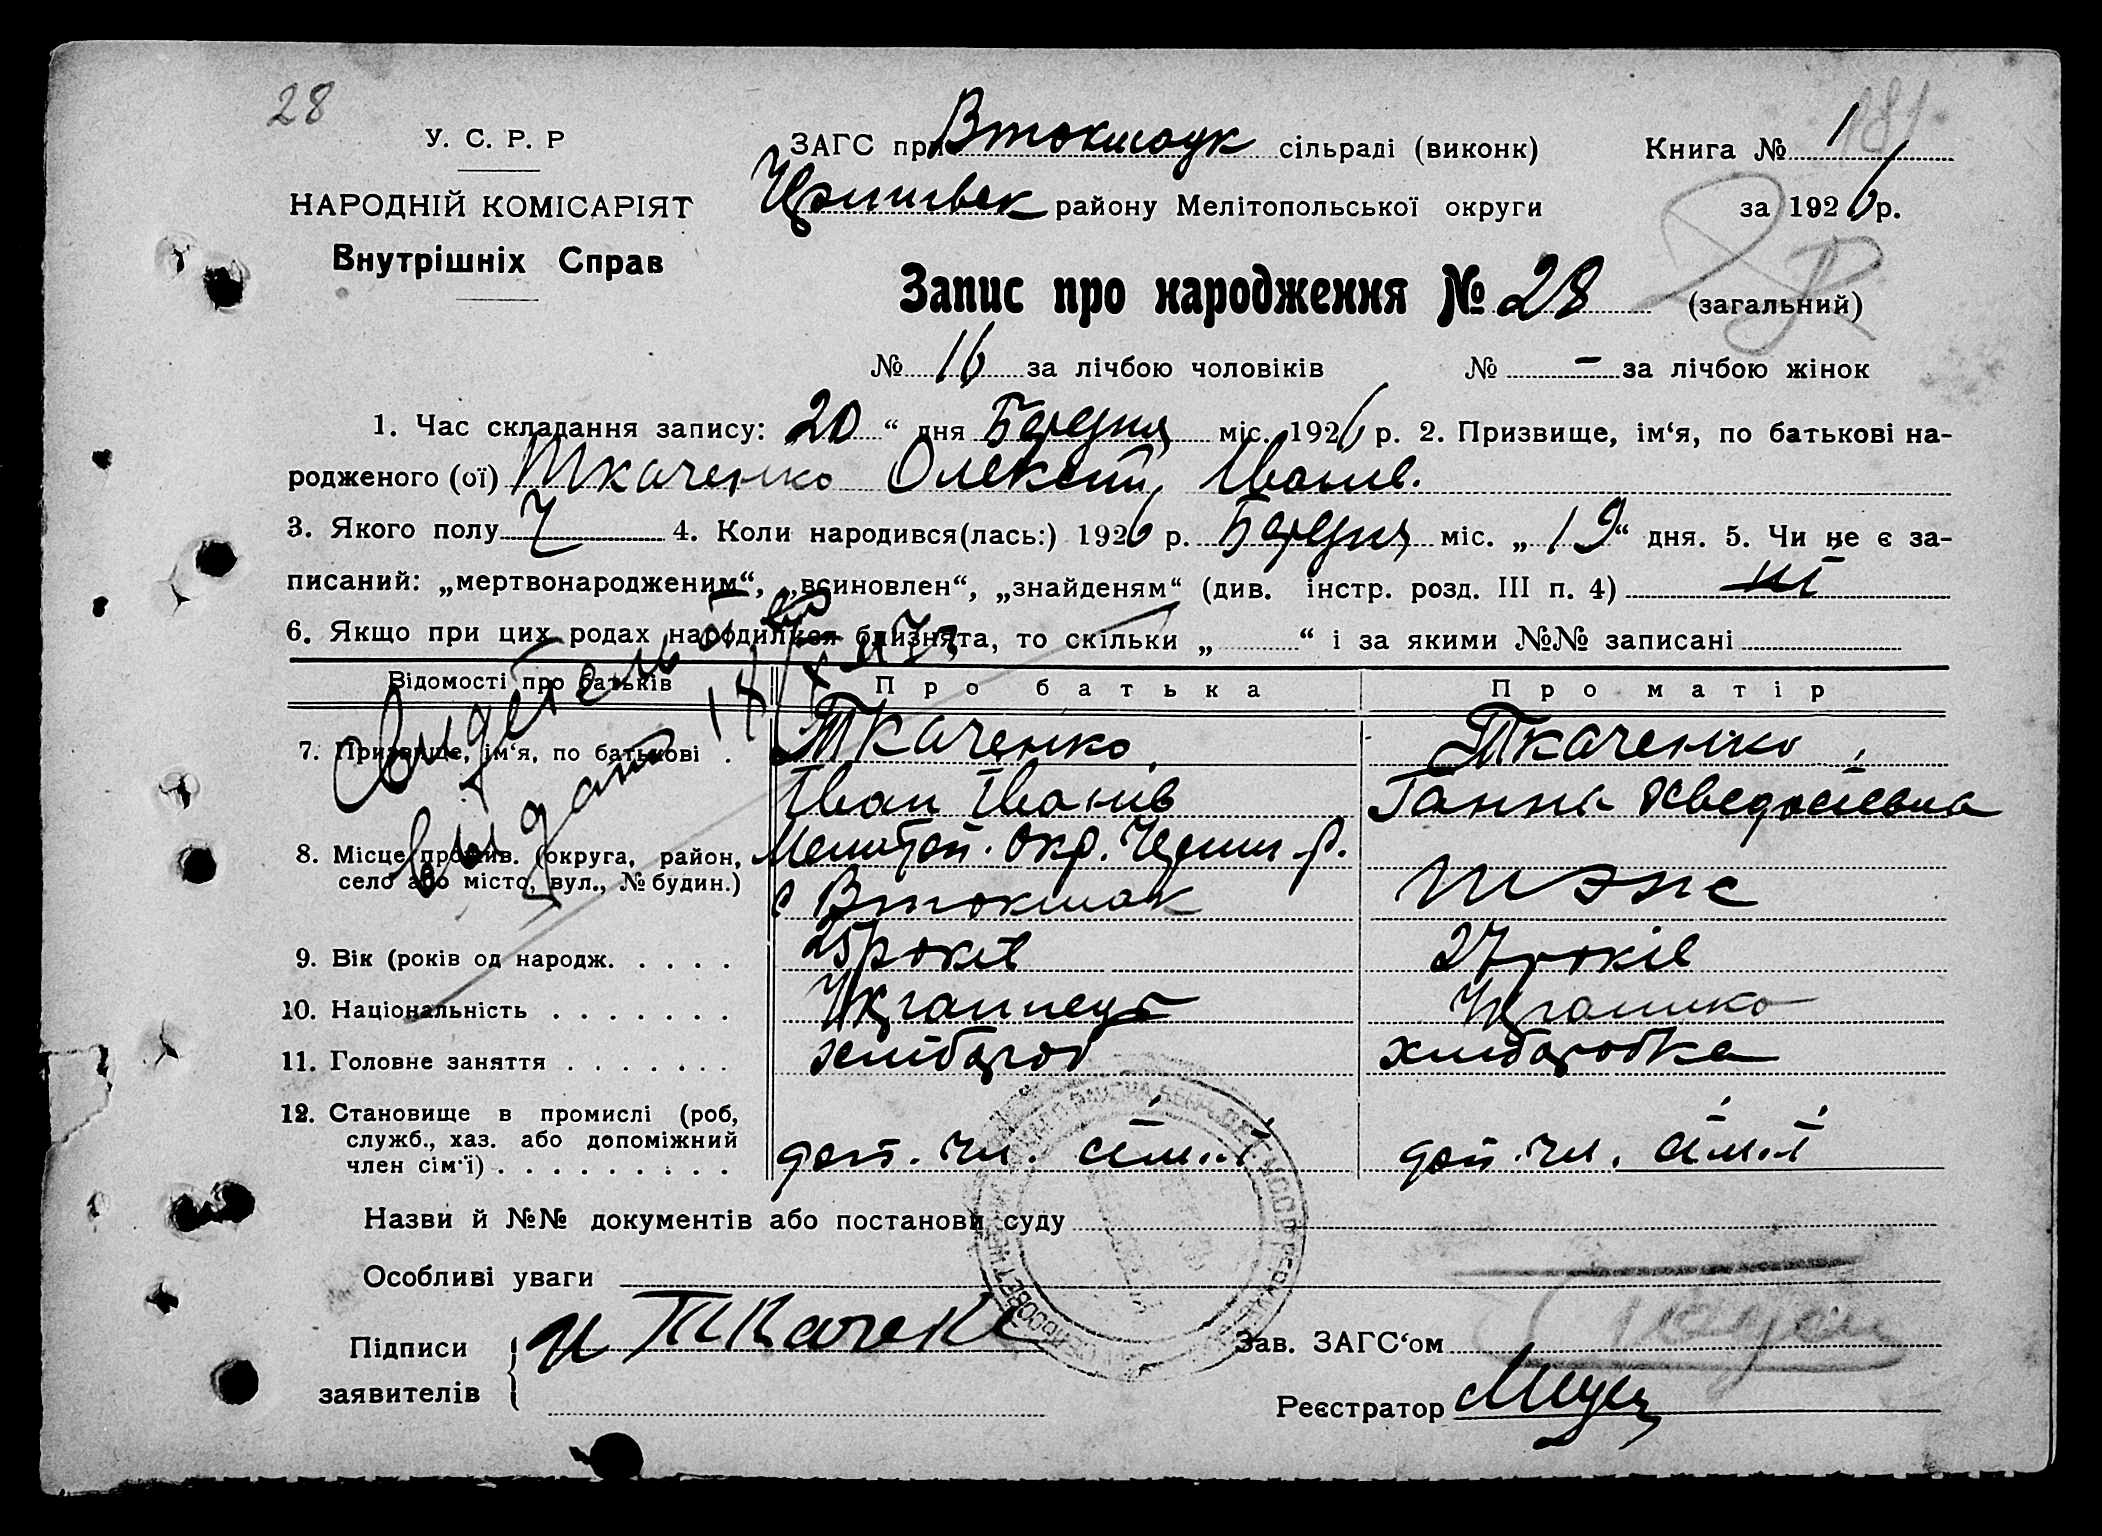 28
У. С. Р. Р
НАРОДНІЙ КОМІСАРІЯТ
Внутрішніх Справ
ЗАГС при сільраді (виконк)
району Мелітопольської округи
Книга № 1
181
за 1926 р.
Запис про народження № 28 (загальний)
№ 16 за лічбою чоловіків № – за лічбою жінок
1. Час складання запису: 20 “ дня міс. 1926 р. 2. Призвище, ім‘я, по батькові на-
родженого (ої) Ткаченко Олексій Іванів.
3. Якого полу Ч 4. Коли народився(лась:) 1926 р. міс. „ 19 “ дня. 5. Чи не є за-
писаний: „мертвонародженим“, „всиновлен“, „знайденям“ (див. інстр. розд. III п. 4) ні
6. Якщо при цих родах народилися близнята, то скільки „ “ і за якими №№ записані
Відомості про батьків Про батька Про матір
7. Призвище, ім‘я, по батькові . Ткаченко Ткаченко
Іван Іванів Ганна
8. Місце прожив. (округа, район, окр. р.
село або місто, вул., № будин.) с тоже
9. Вік (років од народж. . . . . 25 років 27 років
10. Національність . . . . . . . Українець Українка
11. Головне заняття . . . . . . . хлібороб хліборобка
12. Становище в промислі (роб,
служб., хаз. або допоміжний
член сім‘ї) . . . . . . . . . . доп. чл. сім'ї доп. чл. сім'ї
Назви й №№ документів або постанови суду
Особливі уваги
Підписи
заявителів
Зав. ЗАГС‘ом
Реєстратор